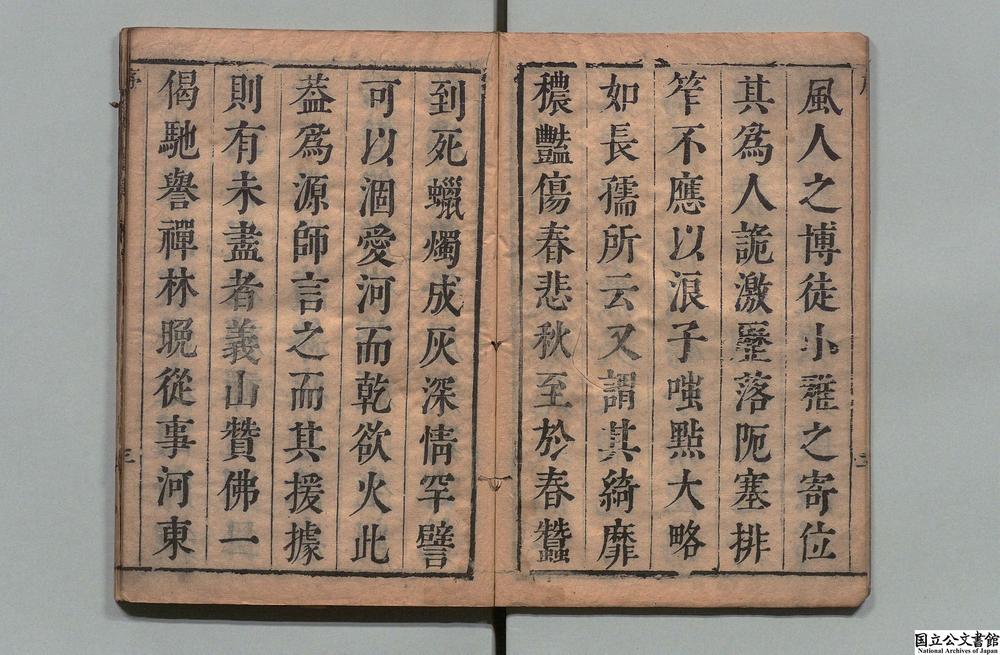 風人之博徒小雅之寄位
其爲人詭激歷落阨塞排
笮不應以浪子嗤點大略
如長孺所云又謂其綺靡
穠豔傷春悲秋至於春蠶
到死蠟燭成灰深情罕譬
可以涸愛河而乾欲火此
葢爲源師言之而其援據
則有未盡者義山贊佛一
偈馳譽禪林晚從事河東
序
三
国立公文書館
National Archives of Japan